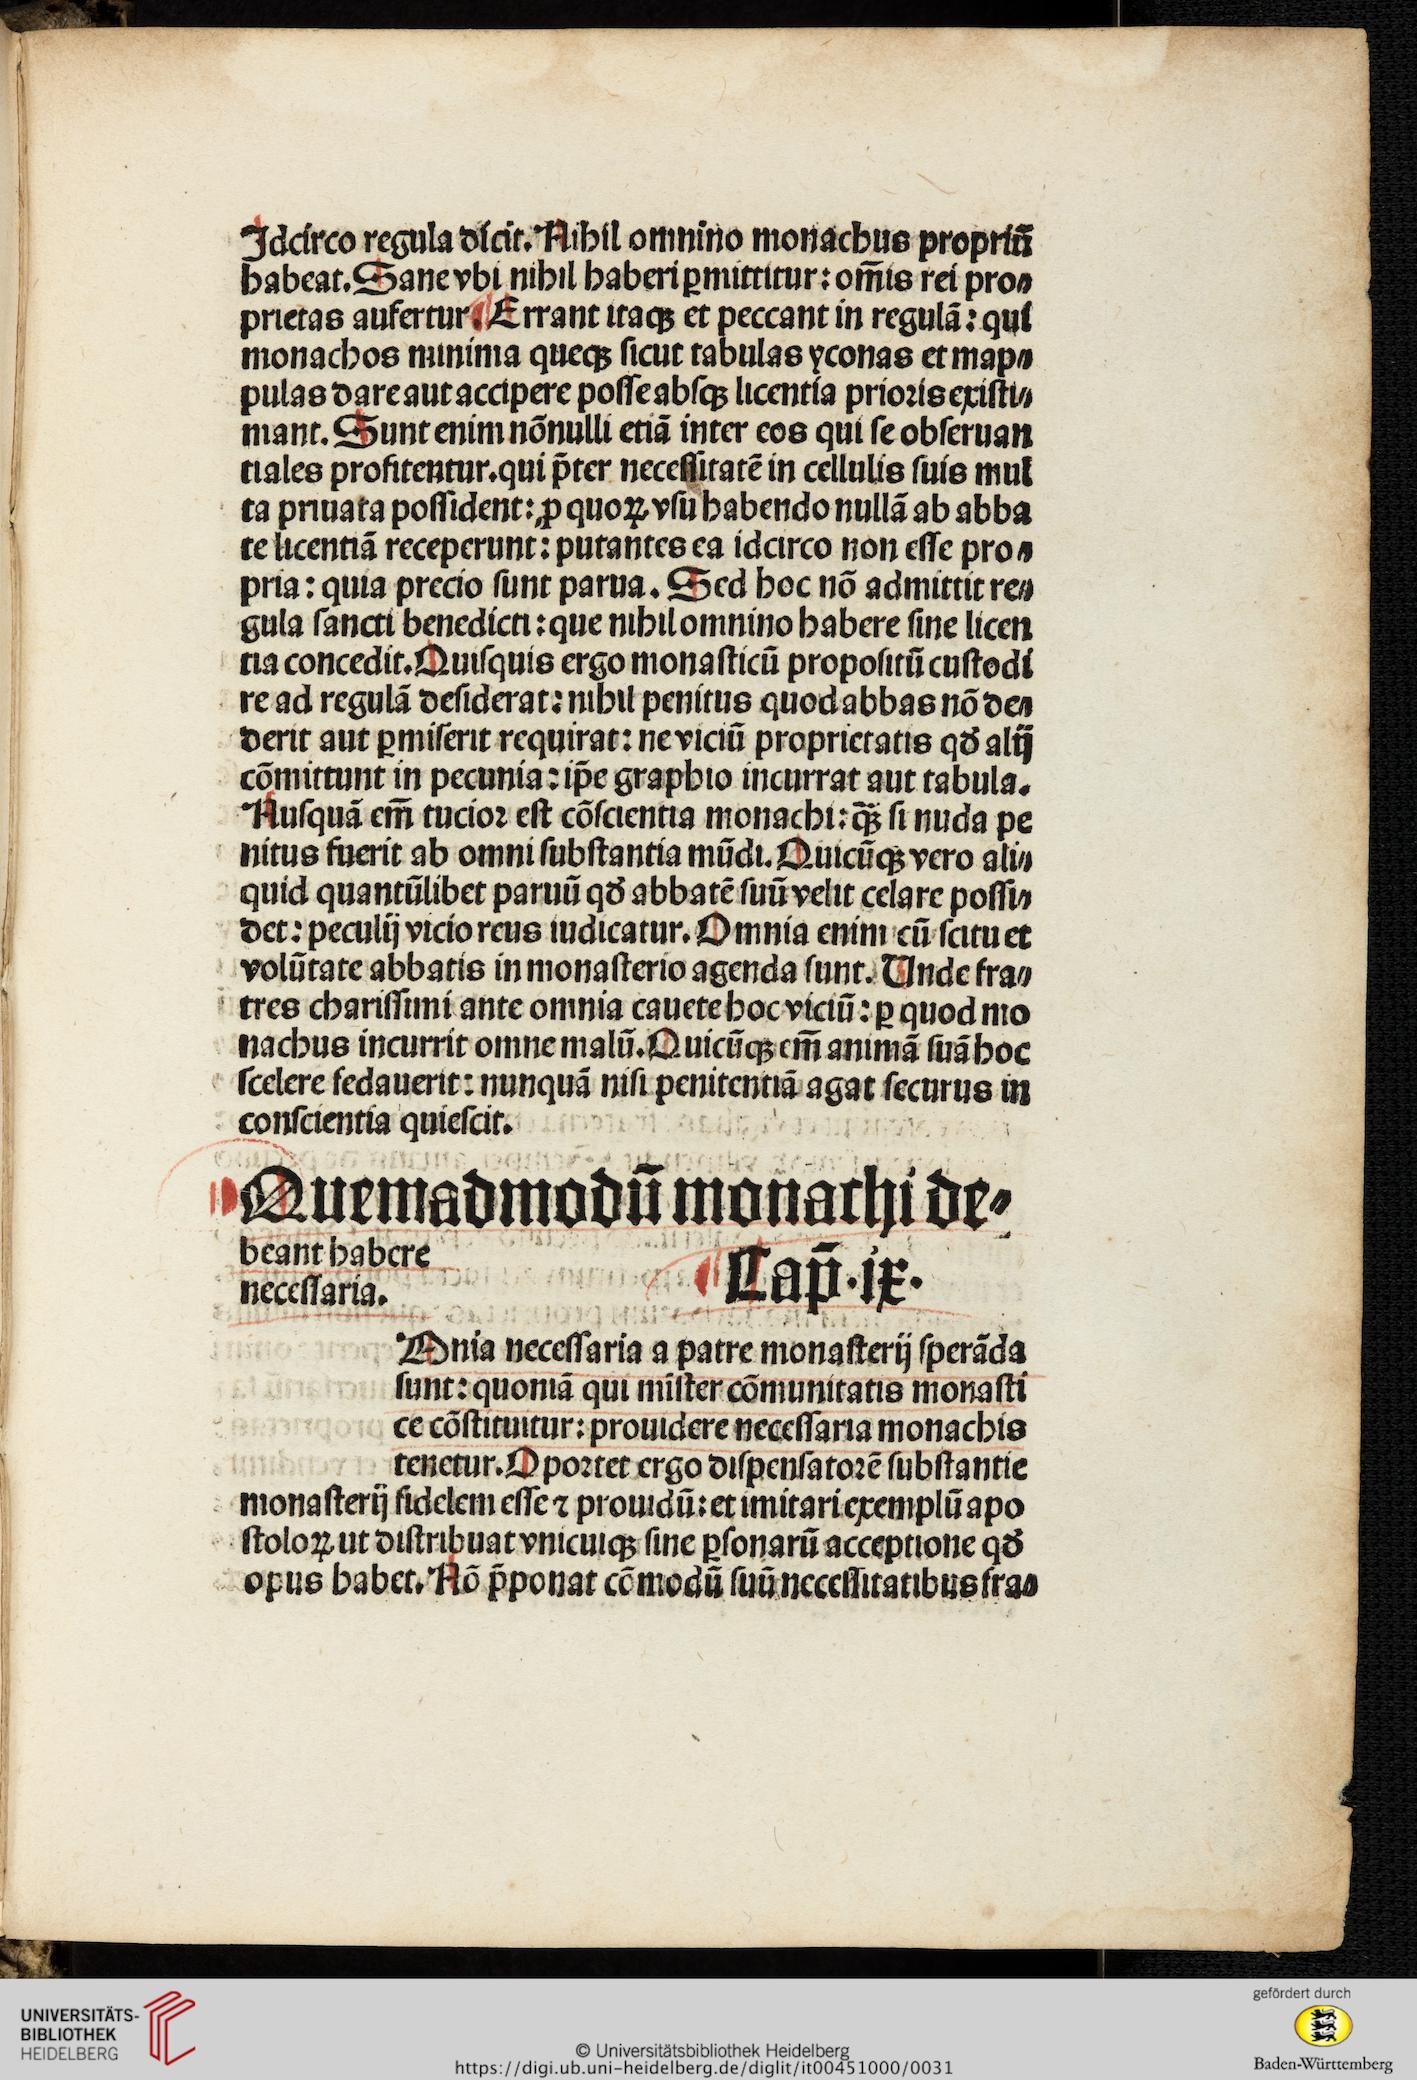 Idcirco regula dicit. Nihil omnino monachus propriū
habeat. Sane vbi nihil haberi ꝑmittitur: om̄is rei pro⸗
prietas aufertur. Errant itaqꝫ et peccant in regulā: qui
monachos minima queqꝫ sicut tabulas yconas et map⸗
pulas dare aut accipere posse absqꝫ licentia prioris existi⸗
mant. Sunt enim nōnulli etiā inter eos qui se obseruan
tiales profitentur. qui p̄ter necessitatē in cellulis suis mul
ta priuata possident: ꝓ quoꝝ vsu habendo nullā ab abba
te licentiā receperunt: putantes ea idcirco non esse pro⸗
pria: quia precio sunt parua. Sed hoc nō admittit re⸗
gula sancti benedicti: que nihil omnino habere sine licen
tia concedit. Quisquis ergo monasticū propositū custodi
re ad regulā desiderat: nihil penitus quod abbas nō de⸗
derit aut ꝑmiserit requirat: ne viciū proprietatis qđ alij
cōmittunt in pecunia: ip̄e graphio incurrat aut tabula.
Nusquā em̄ tucior est cōscientia monachi: q̄ꝫ si nuda pe
nitus fuerit ab omni substantia mūdi. Quicūqꝫ vero ali⸗
quid quantūlibet paruū qđ abbatē suū velit celare possi⸗
det: peculij vicio reus iudicatur. Omnia enim cū scitu et
volūtate abbatis in monasterio agenda sunt. Unde fra⸗
tres charissimi ante omnia cauete hoc viciū: ꝑ quod mo
nachus incurrit omne malū. Quicūqꝫ em̄ animā suā hoc
scelere fedauerit: nunquā nisi penitentiā agat securus in
conscientia quiescit.
Quemadmodū monachi de⸗
beant habere
necessaria.
Cap̄. ix.
Omnia necessaria a patre monasterij sperāda
sunt: quoniā qui mīster cōmunitatis monasti
ce cōstituitur: prouidere necessaria monachis
tenetur. Oportet ergo dispensatorē substantie
monasterij fidelem esse ⁊ prouidū: et imitari exemplū apo
stoloꝝ ut distribuat vnicuiqꝫ sine ꝑsonarū acceptione qđ
opus habet. Nō p̄ponat cōmodū suū necessitatibus fra⸗
UNIVERSITÄTS-
BIBLIOTHEK
HEIDELBERG
© Universitätsbibliothek Heidelberg
https://digi.ub.uni-heidelberg.de/diglit/it00451000/0031
gefördert durch
Baden-Württemberg